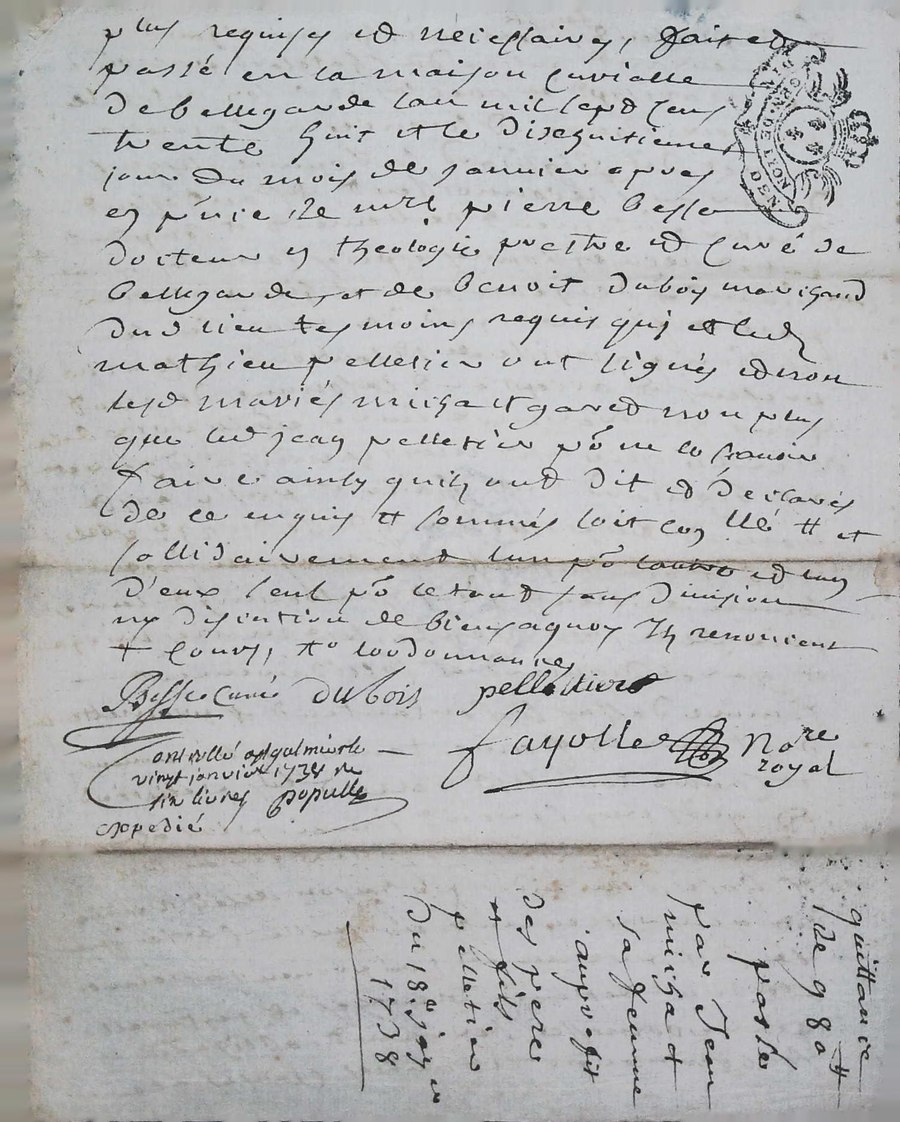 plus requises et neicessaires, fait et
passé en la maison curialle
de bellegarde lan mil sept cens
trente huit et le dixhuitieme
jour du mois de janvier apres
en p'nce de mre pierre besse
docteur en theologie prestre et curé de
bellegarde, et de benoit dubois marchand
dud lieu tesmoins requis qui et led
mathieu pelletier ont signés et non
lesd mariés michat gared non plus
que led jean pelletier po ne le scavoir
faire ainsy quils ont dit et déclarés
de ce enquis et sommés soit
sollidairement lun po lautre et lun
d'eux seul po le tout sans division
ny discution de biens aquoy ils renoncient
Besse curé dubois pelletier
fayolle No.re
royal
controllé a st galmier le
vingt janvier 1738 re
six livres populle
expedié
quittance
de 980 ₶
passée
par Jean
michat et
sa femme
au profit
des pere
et fils
pelletier
du 18e janer
1738